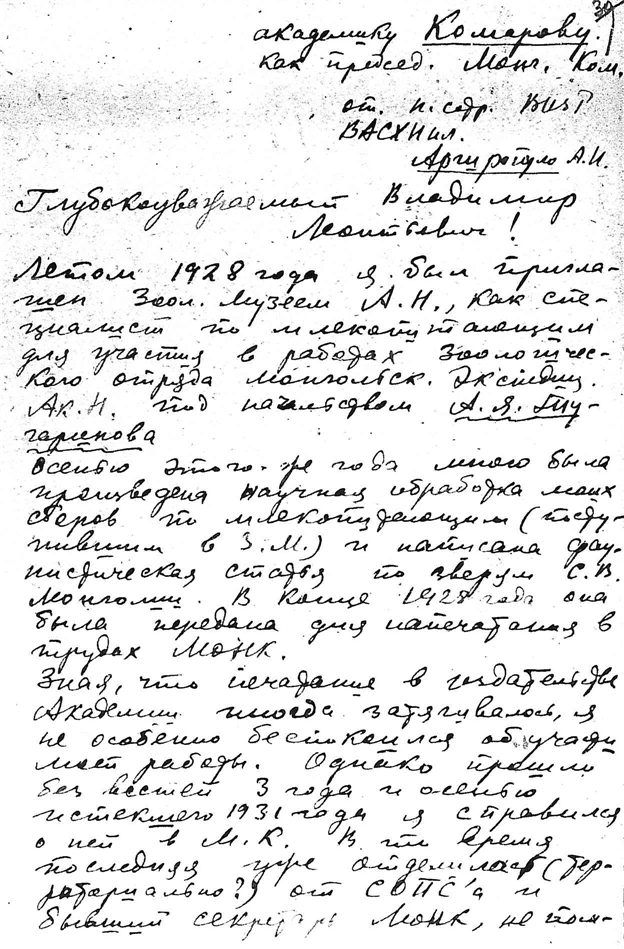 30
академику Комарову.
как председ. Монг. Ком.
от н. сотр. ВИЗР
ВАСХНИЛ.
Аргиропуло А.И.
Глубокоуважаемый Владимир
Леонтьевич!
Летом 1928 года я был пригла-
шен Зоол. Музеем А.Н., как спе-
циалист по млекопитающим
для участия в работах Зоологичес-
кого отряда Монгольск. Экспедиц.
Ак.Н. под начальством А.Я. Ту-
гаринова
Осенью этого-же года мною была
произведена научная обработка моих
сборов по млекопитающим (посту-
пившим в З.М.) и написана фау-
нистическая статья по зверям С.В.
Монголии. В конце 1928 года она
была передана для напечатания в
трудах МОНК.
Зная, что печатание в издательстве
Академии иногда затягивалось, я
не особенно беспокоился об участи
моей работы. Однако прошло
без вестей 3 года и осенью
истекшего 1931 года я справился
о ней в М.К. В это время
последняя уже отделилась (тер-
риториально?) от СОПС'а и
бывший секретарь МОНК, не пом-